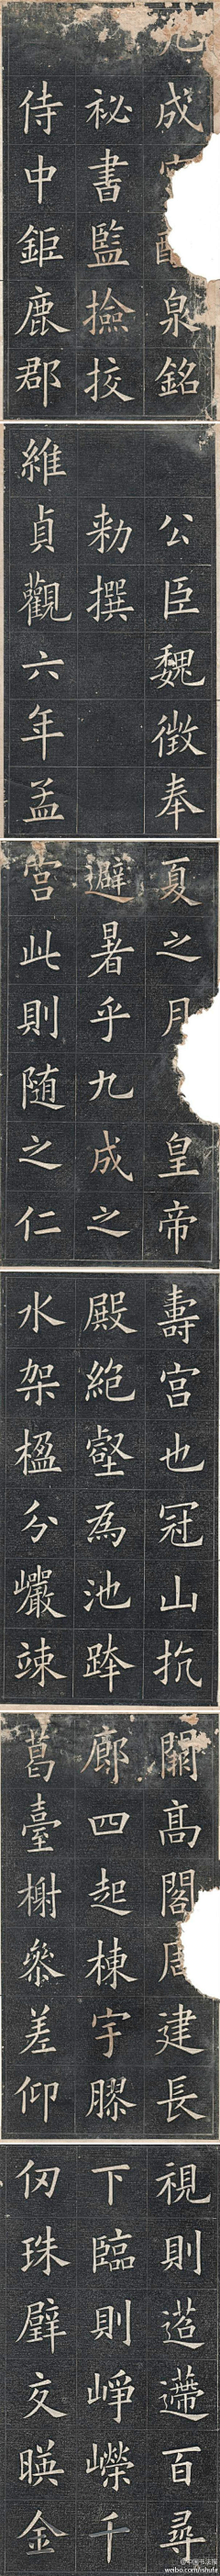 九成宮醴泉銘
祕書監撿挍
侍中鉅鹿郡
公臣魏徵奉
勑撰
維貞觀六年孟
夏之月皇帝
避暑乎九成之
宮此則随之仁
壽宮也冠山抗
殿絕壑為池跨
水架楹分巖竦
闕高閣周建長
廊四起棟宇膠
葛臺榭參差仰
視則迢遰百尋
下臨則崢嶸千
仞珠璧交暎金
weibo.com/nshufa